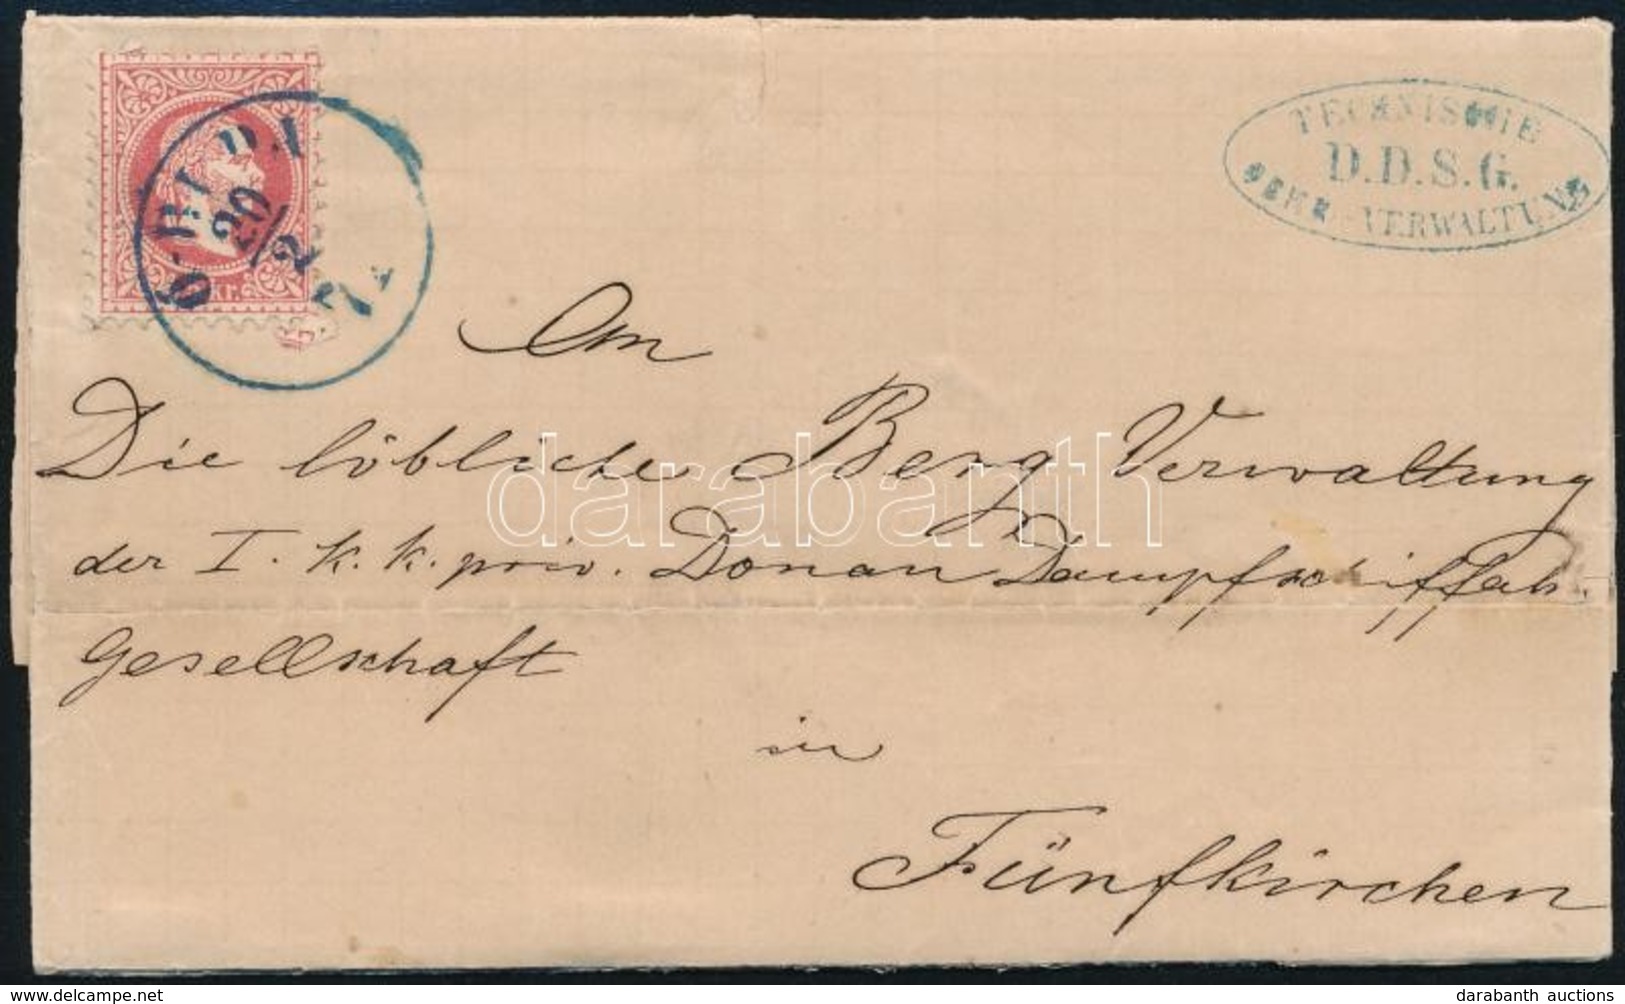 TECHNISCHE
D.D.S.G.
OBER-VERWALTUNG
Ó-BUDA
20
2
KR.
An
Die löbliche Berg Verwaltung
der I. k. k. priv. Donau Dampfschiffah-
Gesellschaft
in
Fünfkirchen
darabanth
delcampe.net
darabanth auctions